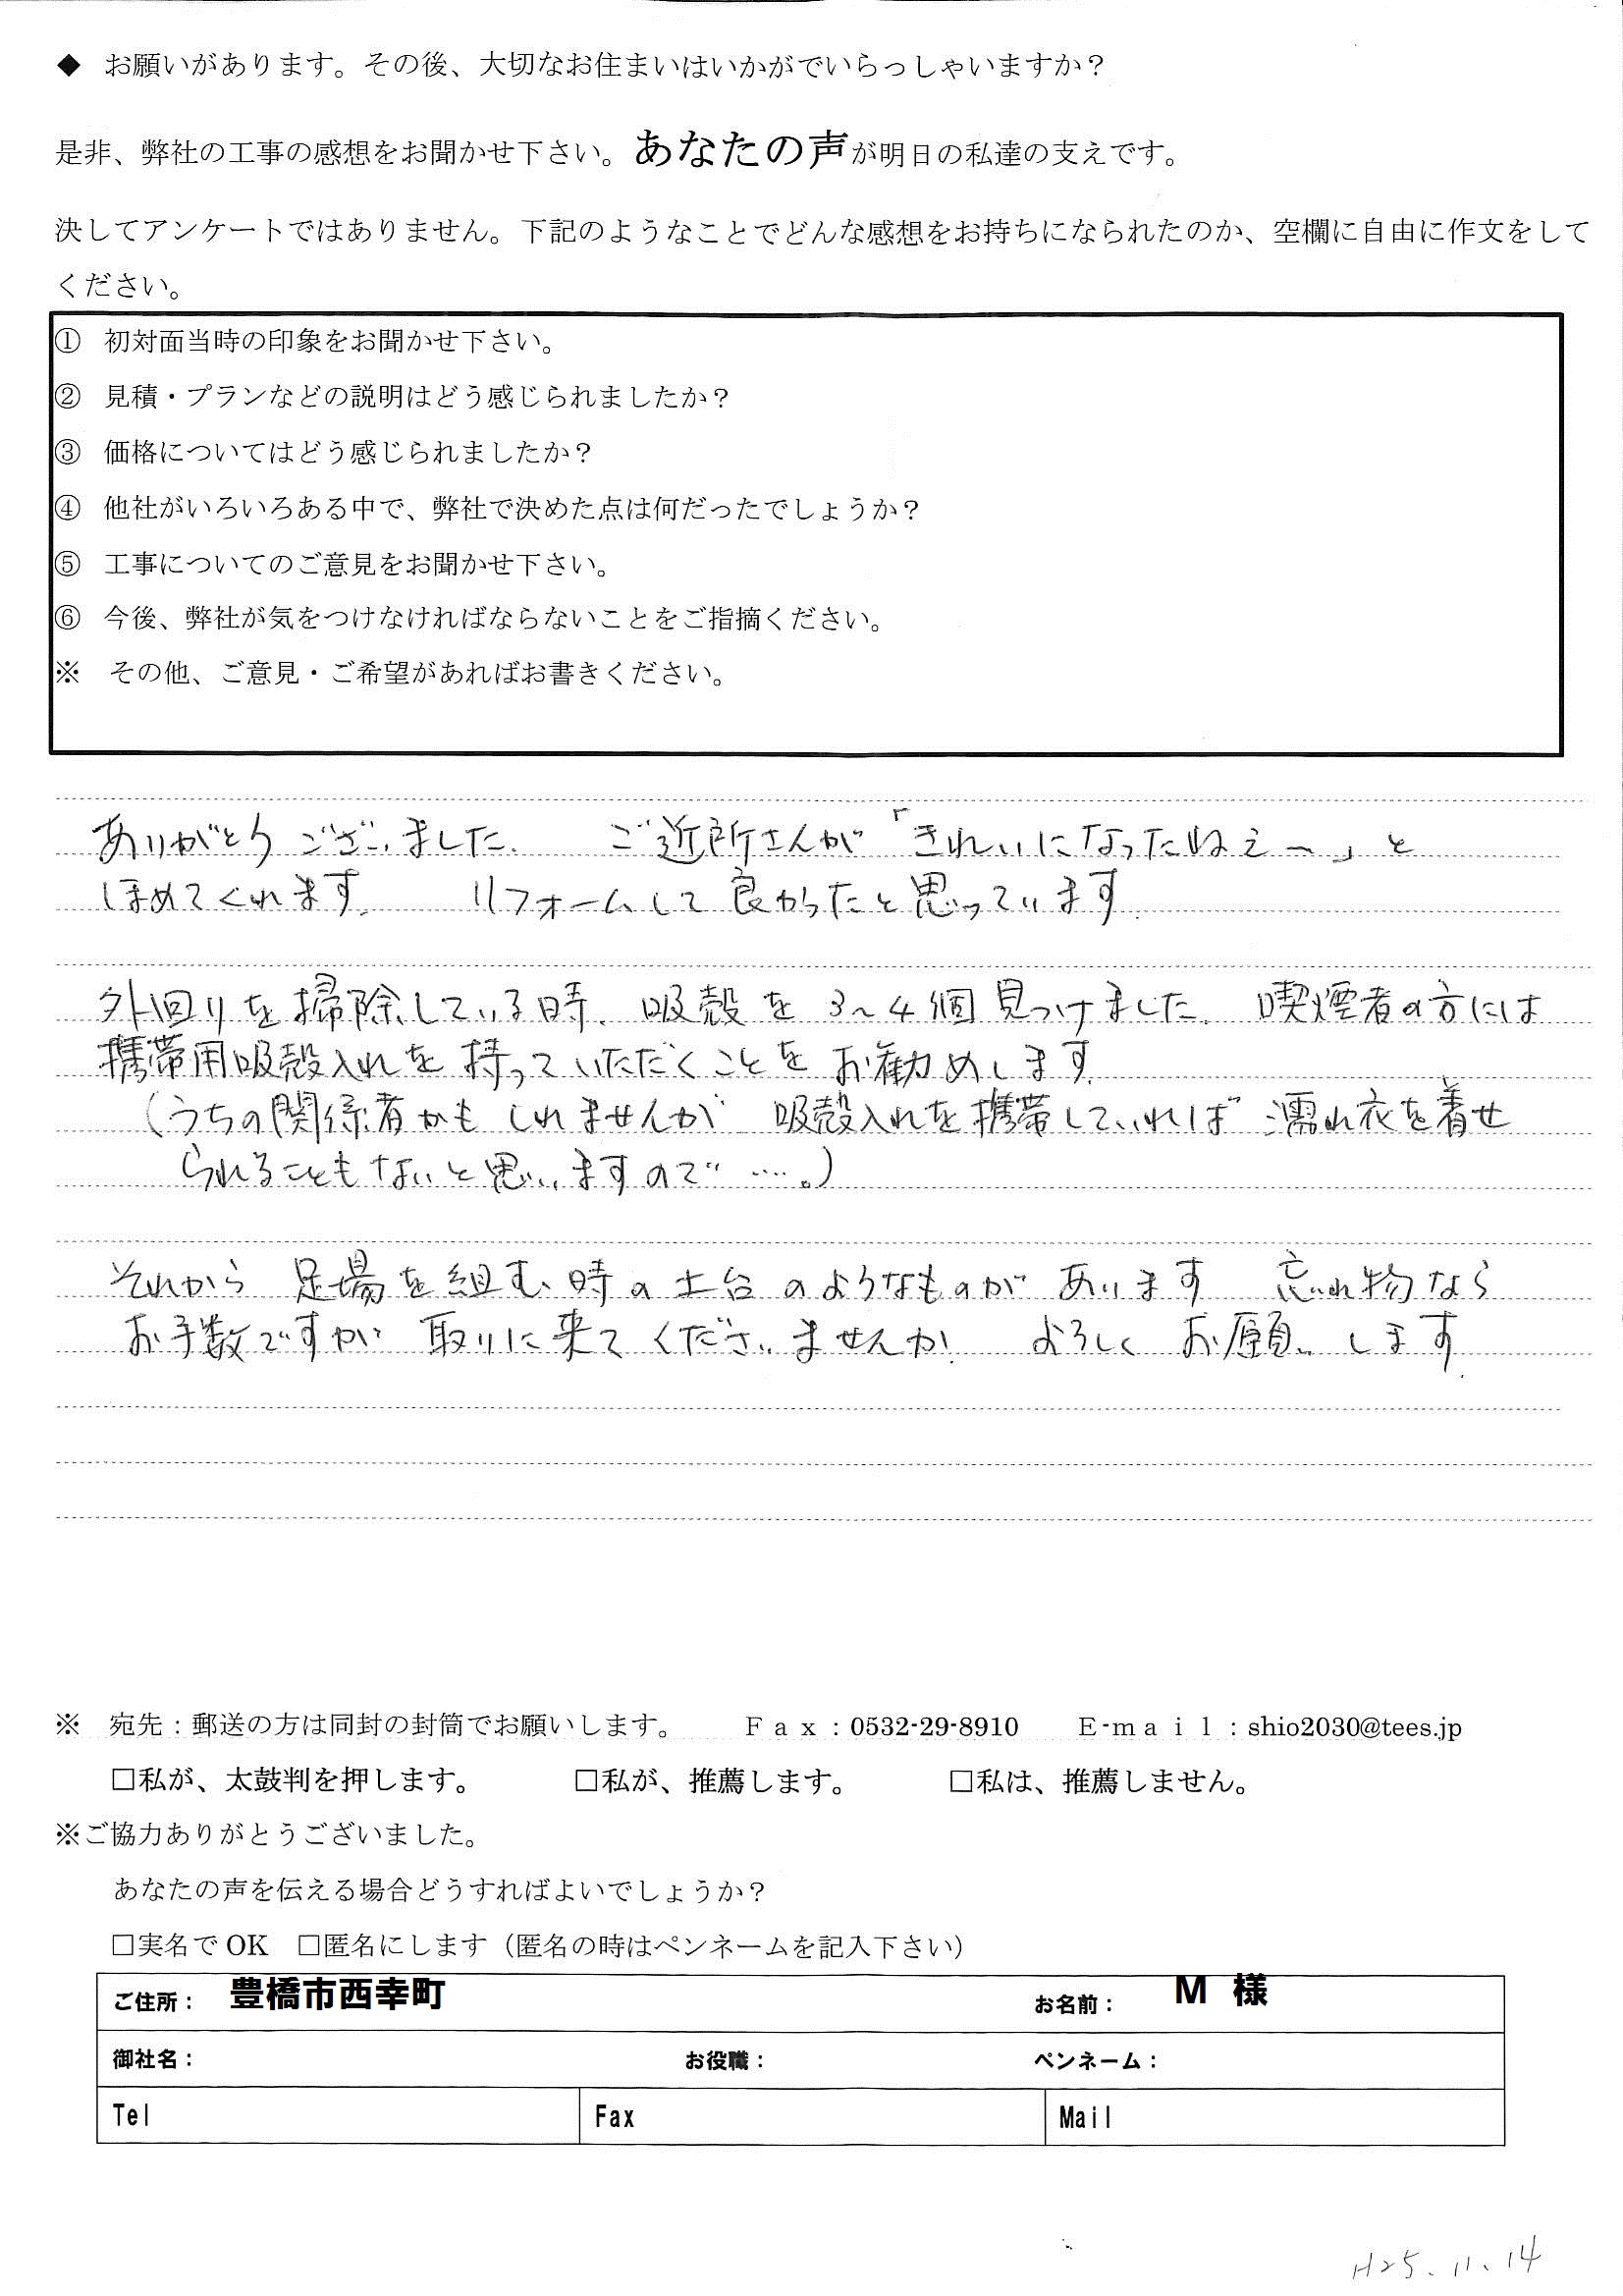 ◆ お願いがあります。その後、大切なお住まいはいかがでいらっしゃいますか？
是非、弊社の工事の感想をお聞かせ下さい。あなたの声が明日の私達の支えです。
決してアンケートではありません。下記のようなことでどんな感想をお持ちになられたのか、空欄に自由に作文をして
ください。
① 初対面当時の印象をお聞かせ下さい。
② 見積・プランなどの説明はどう感じられましたか？
③ 価格についてはどう感じられましたか？
④ 他社がいろいろある中で、弊社で決めた点は何だったでしょうか？
⑤ 工事についてのご意見をお聞かせ下さい。
⑥ 今後、弊社が気をつけなければならないことをご指摘ください。
※ その他、ご意見・ご希望があればお書きください。
ありがとうございました. ご近所さんが「きれいになったねえ〜」と
ほめてくれます. リフォームして良かったと思っています.
外回りを掃除している時、吸殻を3〜4個見つけました. 喫煙者の方には
携帯用吸殻入れを持っていただくことをお勧めします.
(うちの関係者かもしれませんが 吸殻入れを携帯していれば濡れ衣を着せ
られることもないと思いますので……。)
それから 足場を組む時の土台のようなものがあります 忘れ物なら
お手数ですが 取りに来てくださいませんか. よろしくお願いします.
※ 宛先：郵送の方は同封の封筒でお願いします。 Ｆａｘ：0532-29-8910 Ｅ-ｍａｉｌ：shio2030@tees.jp
□私が、太鼓判を押します。 □私が、推薦します。 □私は、推薦しません。
※ご協力ありがとうございました。
あなたの声を伝える場合どうすればよいでしょうか？
□実名でOK □匿名にします（匿名の時はペンネームを記入下さい）
ご住所： 豊橋市西幸町 お名前： M 様
御社名： お役職： ペンネーム：
Tel Fax Mail
H25.11.14